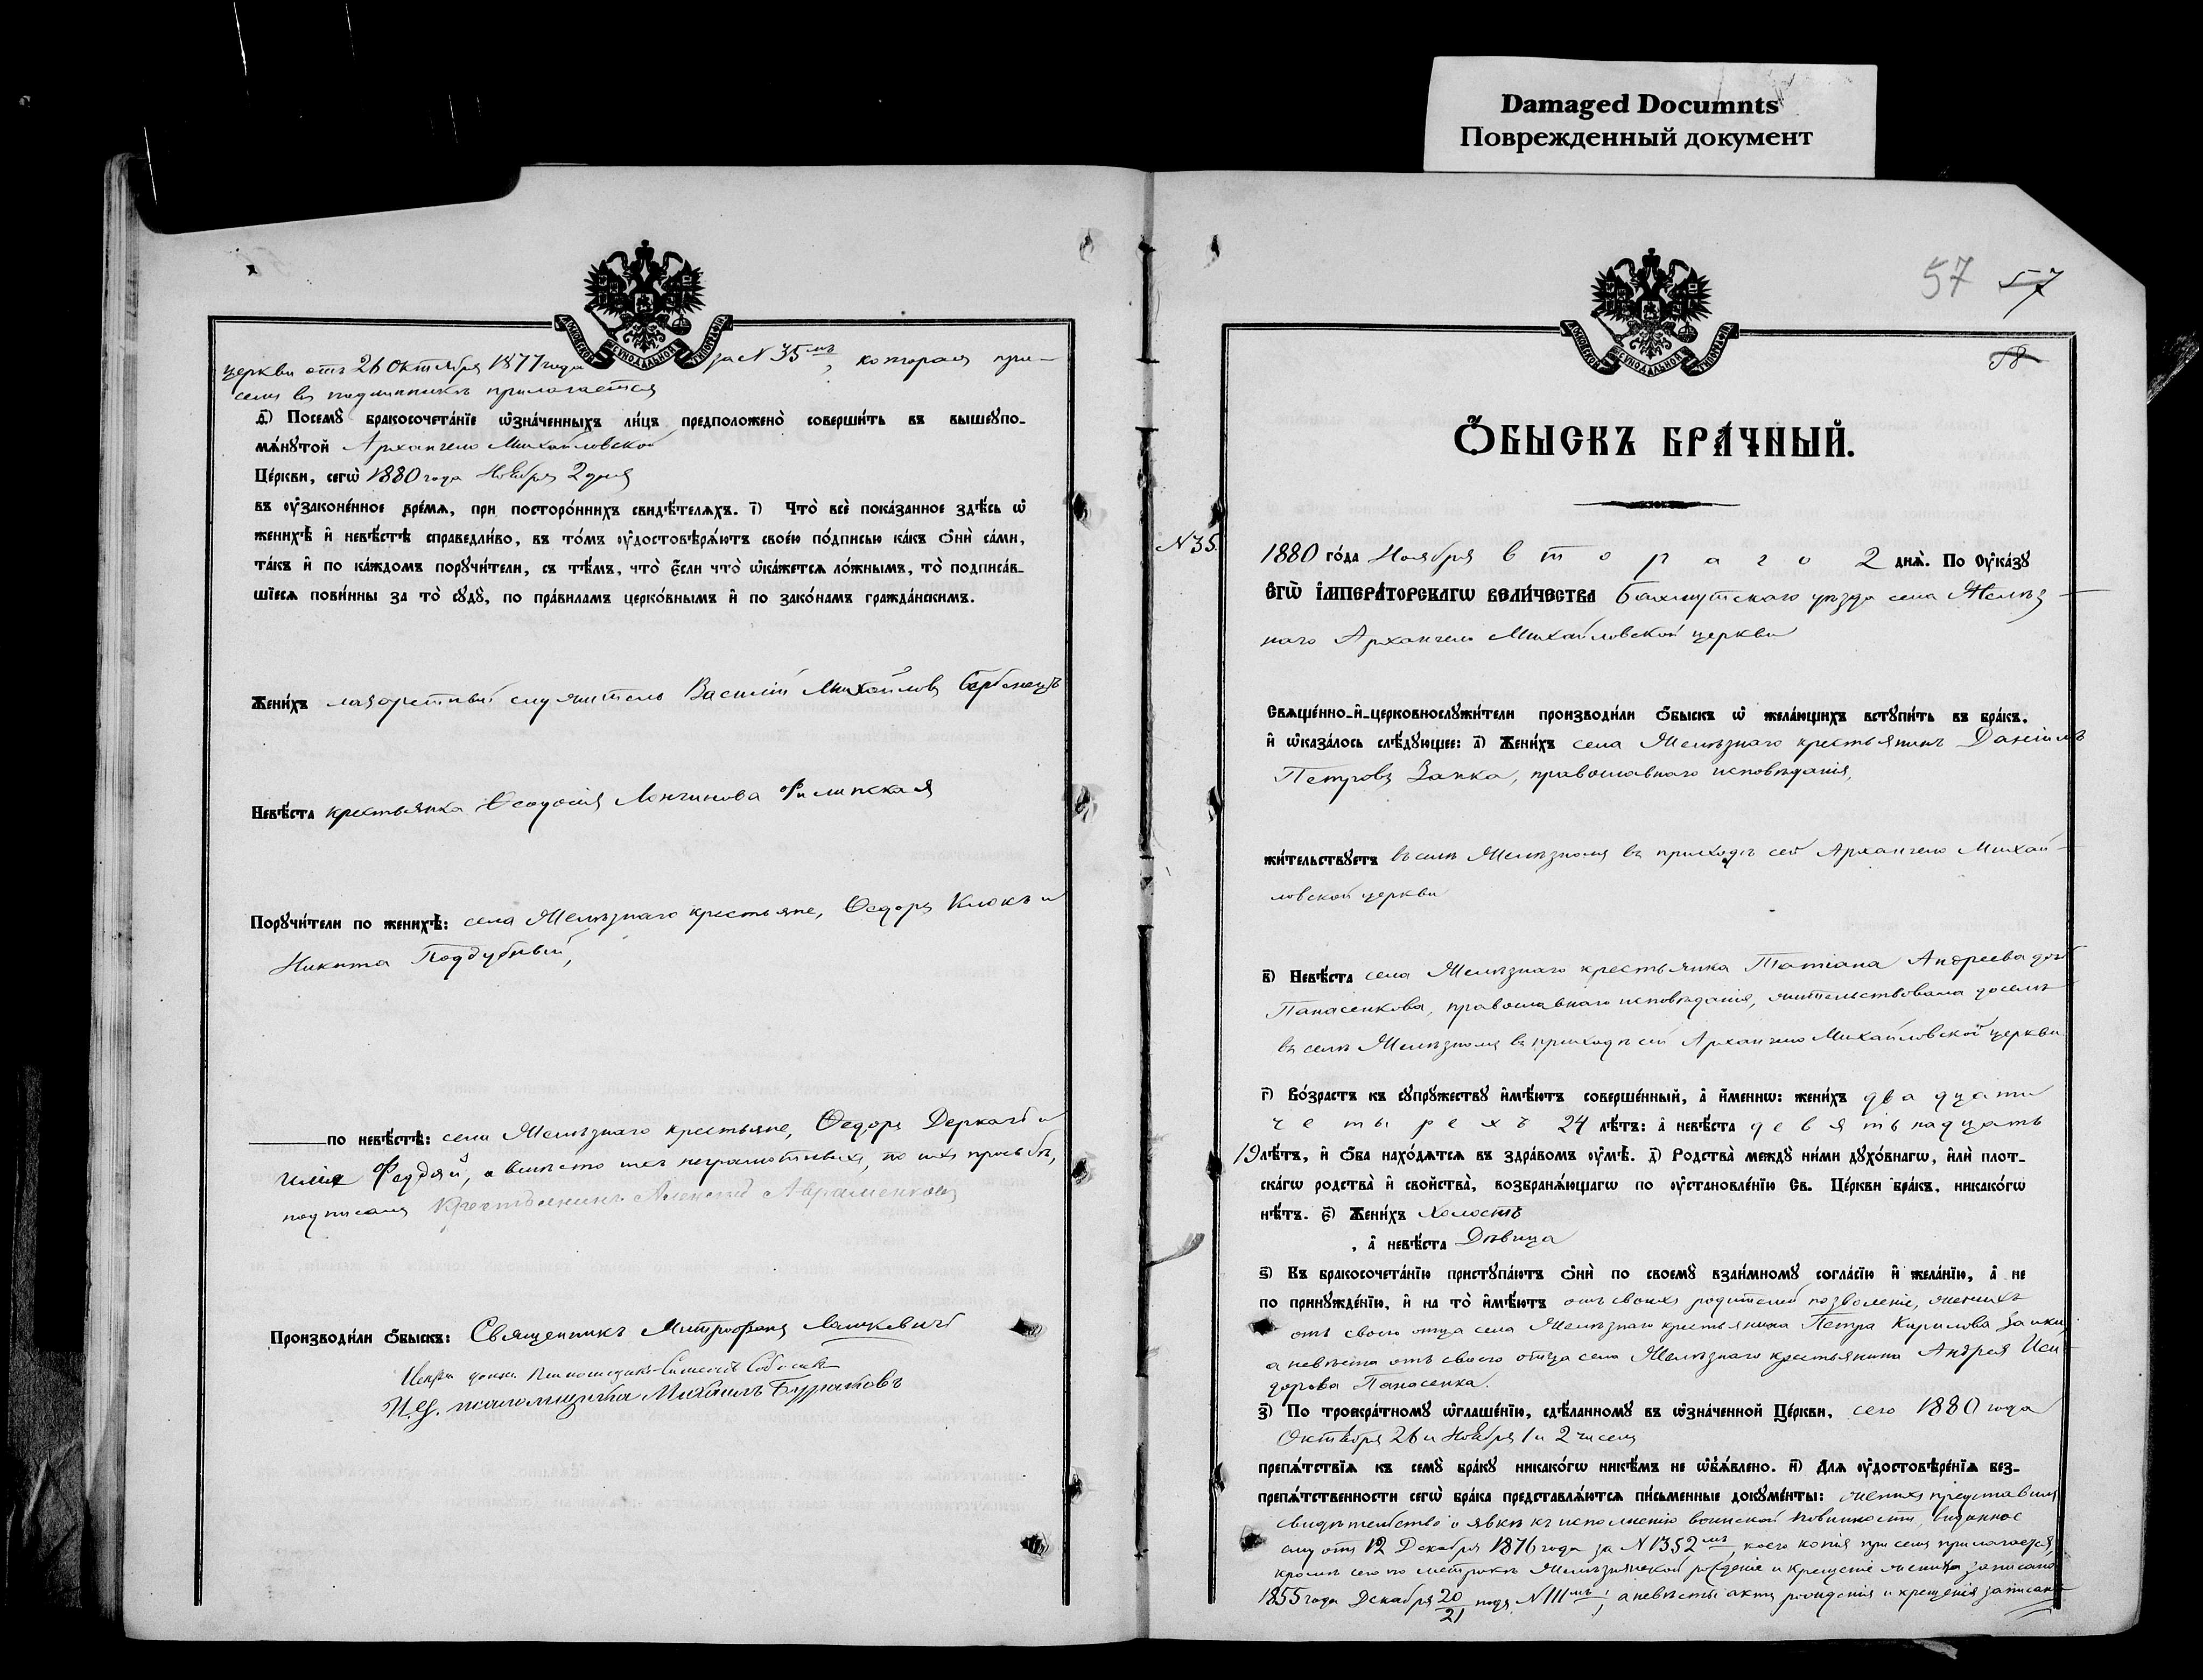 Damaged Documnts
Поврежденный документ
МОСКОВСКОЙ СѴНОДАЛЬНОЙ ТИПОГРАФІИ
церкви отъ 26 Октября 1877 года за № 35мъ, которая при
семъ въ подлинникѣ прилагается
д҃) Посемꙋ̀ бракосочета́нїе ѡ҆зна́ченныхъ ли́цъ предположено̀ соверши́ть въ вышеꙋпо-
мѧ́нꙋтой Архангело Михайловской
Це́ркви, сегѡ̀ 1880 года Ноября 2 дня
въ ᲂу҆зако́ненное вре́мѧ, при посторо́ннихъ свидѣ́телѧхъ. і҃) Что̀ всѐ пока́занное здѣ́сь ѡ҆
женихѣ̀ и҆ невѣ́стѣ справедли́во, въ то́мъ ᲂу҆достовѣрѧ́ютъ свое́ю по́дписью ка́къ ѻ҆нѝ са́ми,
та́къ и҆ по ка́ждомъ порꙋчи́тели, съ тѣ́мъ, что̀ є҆́сли что̀ ѡ҆ка́жетсѧ ло́жнымъ, то̀ подписа́в-
шїесѧ пови́нны за то̀ сꙋдꙋ̀, по пра́виламъ церко́внымъ и҆ по зако́намъ гражда́нскимъ.
Жени́хъ лазоретный служитель Василій Михайловъ Сербенецъ
Невѣ́ста крестьянка Ѳеодосія Лонгинова Филипская
Порꙋчи́тели по женихѣ̀: села Желѣзнаго крестьяне, Ѳедоръ Клюкъ и
Никита Поддубный,
по невѣ́стѣ: села Желѣзнаго крестьяне, Ѳедоръ Деркачъ и
Илія Федяй, а вмѣсто ихъ неграмотныхъ, по ихъ прозьбѣ,
подписалъ крестьянинъ Алексѣй Авраменковъ
Производи́ли ѻ҆́быскъ: Священникъ Митрофанъ Лашкевичъ
И.д. псаломщика Михаилъ Бураковъ
57 57
58
Ѻ҆́БЫСКЪ БРА́ЧНЫЙ.
№ 35.
1880 го́да Ноября втораго 2 днѧ̀. По ᲂу҆ка́зꙋ
Є҆ГѠ̀ І҆МПЕРА́ТОРСКАГѠ ВЕЛИ́ЧЕСТВА Бахмутскаго уѣзда села Желѣз
наго Архангело Михайловской церкви
Свѧще́нно-и҆-церковнослꙋжи́тели производи́ли ѻ҆́быскъ ѡ҆ жела́ющихъ встꙋпи́ть въ бра́къ,
и҆ ѡ҆каза́лось слѣ́дꙋющее: а҃) Жени́хъ села Желѣзнаго крестьянинъ Даніилъ
Петровъ Заика, православнаго исповѣданія,
жи́тельствꙋетъ въ селѣ Желѣзномъ въ приходѣ сей Архангело Михай
ловской церкви
в҃) Невѣ́ста села Желѣзнаго крестьянка Татіана Андреева дочь
Панасенкова, православнаго исповѣданія, жительствовала доселѣ
въ селѣ Желѣзномъ въ приходѣ сей Архангело Михайловской церкви
г҃) Во́зрастъ къ сꙋпрꙋ́жествꙋ и҆мѣ́ютъ соверше́нный, а҆ и҆́меннѡ: жени́хъ двадцати
четырехъ 24 лѣ́тъ: а҆ невѣ́ста девятьнадцать
19 лѣ́тъ, и҆ ѻ҆́ба нахо́дѧтсѧ въ здра́вомъ ᲂу҆мѣ̀. д҃) Родства̀ междꙋ ни́ми дꙋхо́внагѡ, и҆лѝ плот-
ска́гѡ родства̀ и҆ сво́йства, возбранѧ́ющагѡ по ᲂу҆становле́нїю Св. Це́ркви бра́къ, никако́гѡ
нѣ́тъ. є҃) Жени́хъ холостъ
, а҆ невѣ́ста дѣвица
ѕ҃) Къ бракосочета́нїю пристꙋпа́ютъ ѻ҆нѝ по своемꙋ̀ взаи́мномꙋ согла́сїю и҆ жела́нїю, а҆ не
по принꙋжде́нїю, и҆ на то̀ и҆мѣ́ютъ отъ своихъ родителей позволеніе, женихъ
отъ своего отца села Желѣзнаго крестьянина Петра Кирилова Заики,
а невѣста отъ своего отца села Желѣзнаго крестьянина Андрея Иси
дорова Панасенка.
з҃) По троекра́тномꙋ ѡ҆глаше́нїю, сдѣ́ланномꙋ въ ѡ҆зна́ченной Це́ркви, сего 1880 года
Октября 26 и Ноября 1 и 2 числъ
препѧ́тствїѧ къ семꙋ̀ бра́кꙋ никако́гѡ никѣ́мъ не ѡ҆б̾ѧ́влено. и҃) Длѧ ᲂу҆достовѣре́нїѧ без-
препѧ́тственности сегѡ̀ бра́ка представлѧ́ютсѧ пи́сьменные докꙋме́нты: женихъ представилъ
свидѣтельство о явкѣ къ исполненію воинской повинности, выданное
ему отъ 12 Декабря 1876 года за № 1352мъ, коего копія при семъ прилагается,
кромѣ сего по метрикѣ Желѣзнянской рожденіе и крещеніе жениха записано
1855 года Декабря 20/21 подъ № 111мъ, а невѣсты актъ рожденія и крещенія записанъ